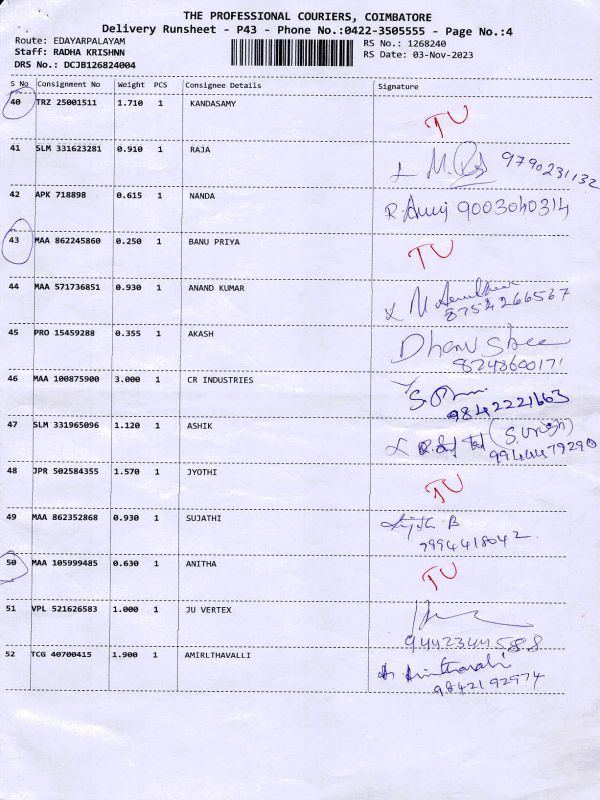 THE PROFESSIONAL COURIERS, COIMBATORE
Delivery Runsheet - P43 - Phone No.:0422-3505555 - Page No.:4
Route: EDAYARPALAYAM
RS No.: 1268240
Staff: RADHA KRISHNN
RS Date: 03-Nov-2023
DRS No.: DCJB126824004
S No Consignment No Weight PCS Consignee Details Signature
40 TRZ 25001511 1.710 1 KANDASAMY TU
41 SLM 331623281 0.910 1 RAJA 9790231132
42 APK 718898 0.615 1 NANDA 9003040314
43 MAA 862245860 0.250 1 BANU PRIYA TU
44 MAA 571736851 0.930 1 ANAND KUMAR
8754266567
45 PRO 15459288 0.355 1 AKASH Dhanu Shree
8248600171
46 MAA 100875900 3.000 1 CR INDUSTRIES
9842221663
47 SLM 331965096 1.120 1 ASHIK
9944479290
48 JPR 502584355 1.570 1 JYOTHI TU
49 MAA 862352868 0.930 1 SUJATHI
9994418042
50 MAA 105999485 0.630 1 ANITHA TU
51 VPL 521626583 1.000 1 JU VERTEX
52 TCG 40700415 1.900 1 AMIRLTHAVALLI
9842192974